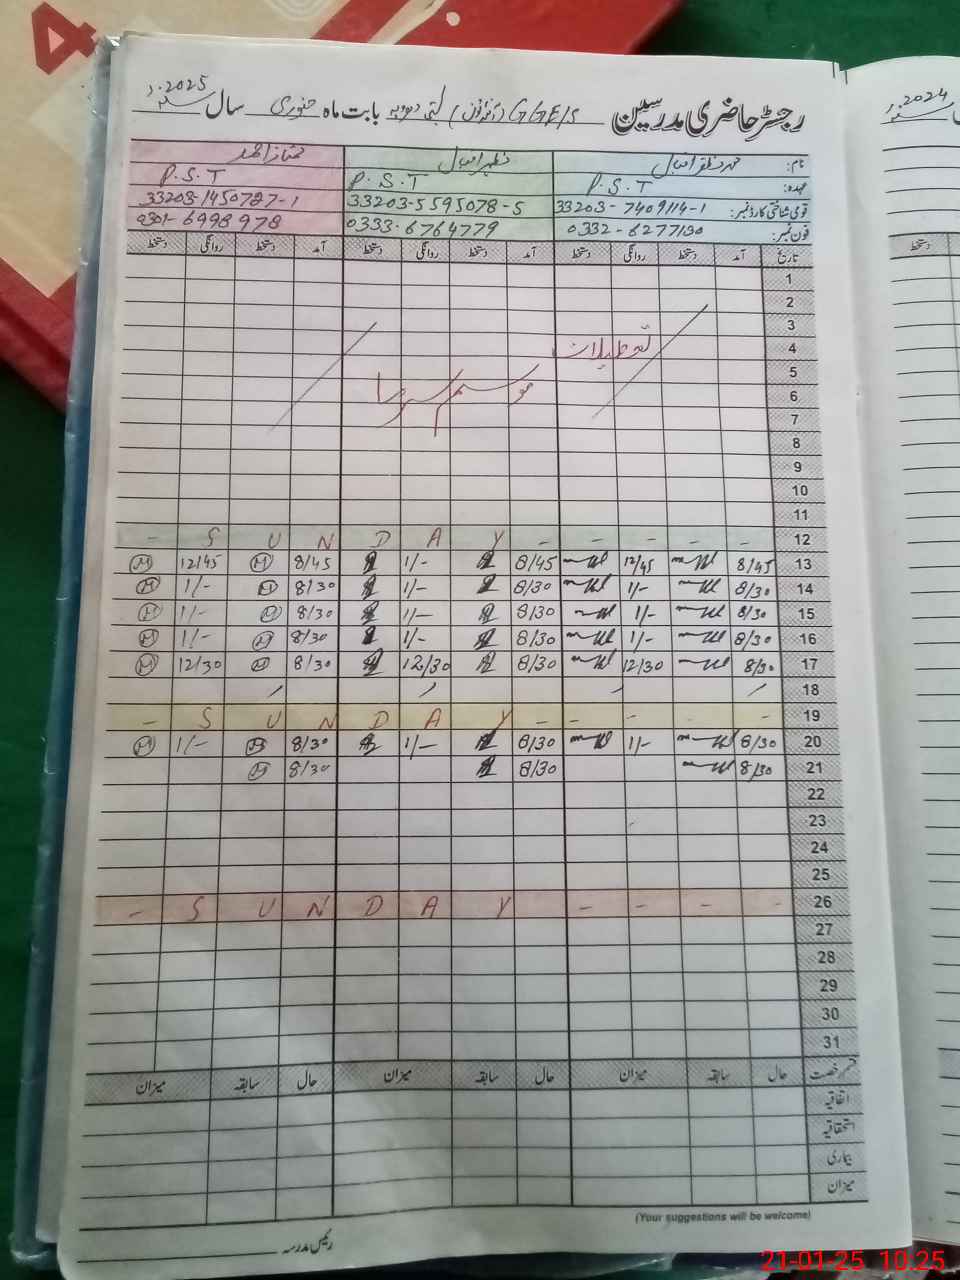 رجسٹر حاضری مدرسین GGE/S بابت ماہ جنوری سال 2025ء
نام: محمد ظفر اقبال ظہیر اقبال ممتاز احمد
عہدہ: P.S.T P.S.T P.S.T
قومی شناختی کارڈ نمبر: 33203-7409114-1 33203-5595078-5 33203-1450787-1
فون نمبر: 0332-6277130 0333-6764779 0301-6998978
تاریخ آمد دستخط روانگی دستخط آمد دستخط روانگی دستخط آمد دستخط روانگی دستخط
1
2
3
4 تعطیلات
5
6 موسم سرما
7
8
9
10
11
12 - S U N D A Y - - - - -
13 8/45 12/45 8/45 1/- 8/45 M 12/45 M
14 8/30 1/- 8/30 1/- 8/30 M 1/- M
15 8/30 1/- 8/30 1/- 8/30 M 1/- M
16 8/30 1/- 8/30 1/- 8/30 M 1/- M
17 8/30 12/30 8/30 12/30 8/30 M 12/30 M
18
19 - S U N D A Y - - - - -
20 8/30 1/- 8/30 1/- 8/30 M 1/- M
21 8/30 8/30 8/30 M
22
23
24
25
26 - S U N D A Y - - - -
27
28
29
30
31
قسم رخصت حال سابقہ میزان حال سابقہ میزان حال سابقہ میزان
اتفاقیہ
استحقاقیہ
بیماری
میزان
(Your suggestions will be welcome)
رئیس مدرسہ
2024ء
دستخط
4
21-01-25 10:25